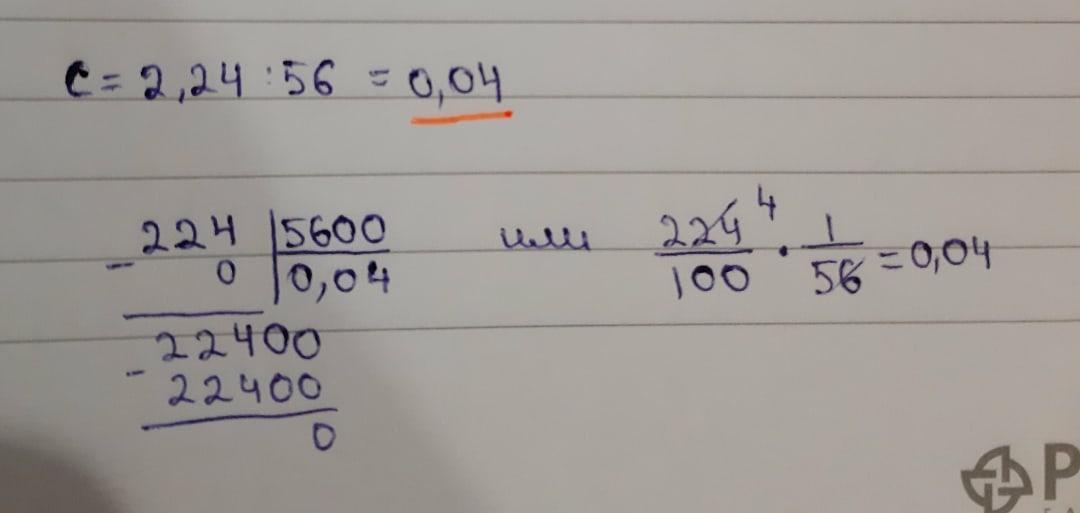 C = 2,24 : 56 = 0,04
224 | 5600
- 0 | 0,04
22400
- 22400
0
или
224 4 / 100 · 1 / 56 = 0,04
P